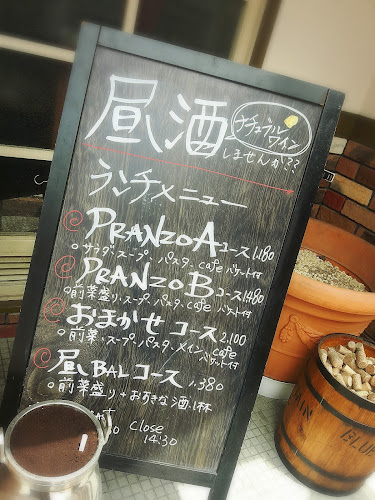 昼酒
ナチュラル
ワイン
しませんか??
ランチメニュー
PRANZO A コース 1.180
サラダ・スープ パスタ. cafe バケット付
PRANZO B コース 1480
前菜盛り・スープ. パスタ. cafe バケット付
おまかせ コース 2.100
前菜・スープ・パスタ・メイン cafe バケット付
昼BAL コース 1.380
前菜盛り + お好きな酒1杯
Close
14.30